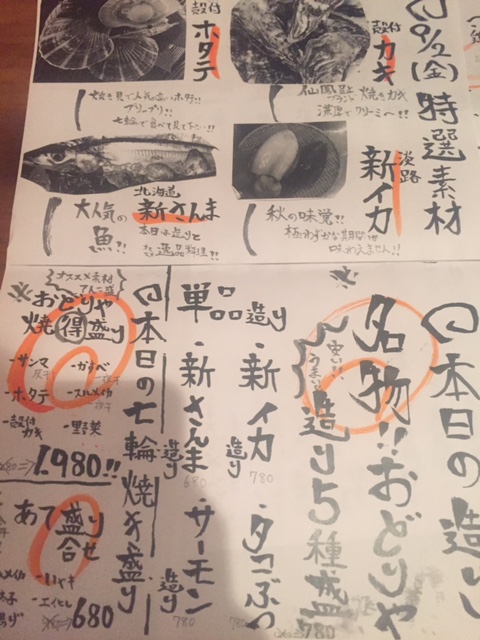 9/2(金)特選素材
殻付
カキ
仙鳳趾
ブランド 焼きガキ
濃厚でクリーミー!!
淡路
新イカ
秋の味覚!!
極わずかな期間しか
味わえません!!
殻付
ホタテ
プリップリ!!
七輪で食べて見て下さい!!
北海道
新さんま
本日は造りと
逸品料理!!
大人気の
魚!!
本日の造り
名物!!おどりや
造り5種盛
安い!!
うまい!!
780
単品造り
・新イカ
造り
780
・新さんま
造り
680
・タコぶつ
780
・サーモン
造り
780
本日の七輪焼き盛り
オススメ素材
てんこ盛
※おどりや
焼得盛り
・サンマ
・ホタテ
・殻付
カキ
・スルメイカ
・野菜
1.980!!
あて盛り
合せ
・エイヒレ
680